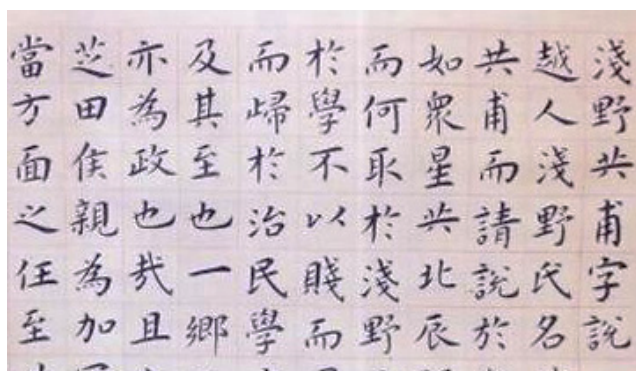 淺野共甫字說
越人淺野氏名
共甫而請說於
如衆星共北辰
而何取於淺野
於學不以賤而
而歸於治民學
及其至也一鄉
亦為政也哉且
芝田侯親為加
當方面之任至